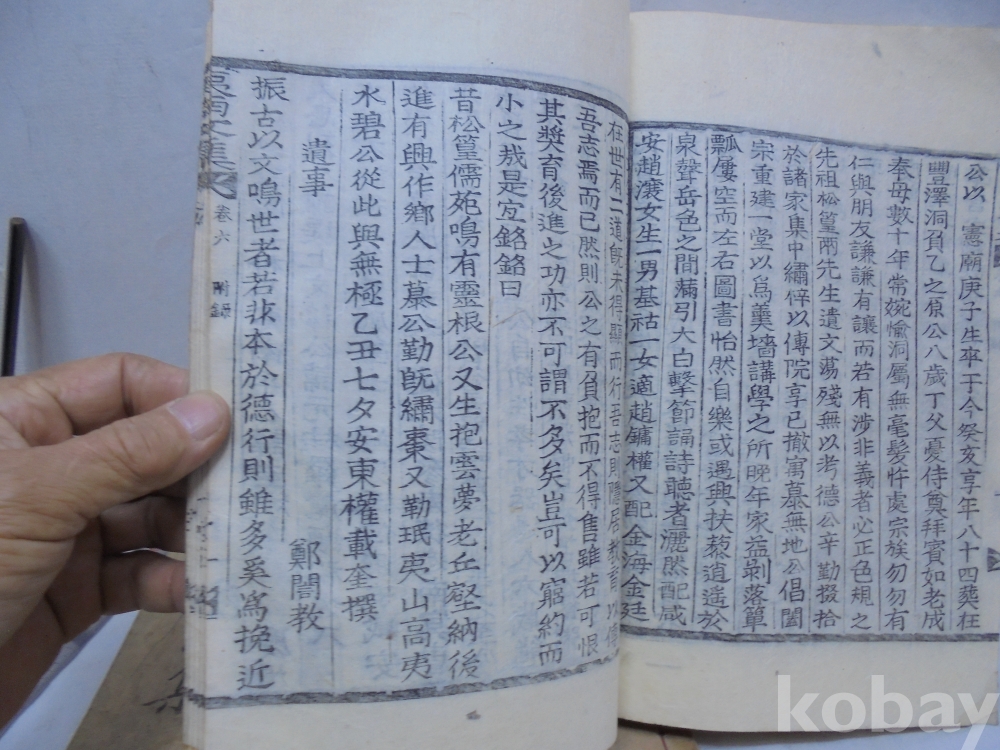 公以 憲廟庚子生卒于今癸亥享年八十四葬在
豐澤洞負乙之原公八歲丁父憂侍奠拜賓如老成
奉母數十年常婉愉洞屬無毫髮忤處宗族勿勿有
仁與朋友謙謙有讓而若有涉非義者必正色規之
先祖松篁兩先生遺文蕩殘無以考德公辛勤掇拾
於諸家集中繡梓以傳院享已撤寓慕無地公倡闔
宗重建一堂以爲羹墻講學之所晩年家益剝落簞
瓢屢空而左右圖書怡然自樂或遇興扶藜逍遙於
泉聲岳色之間滿引大白擊節誦詩聽者灑然配咸
安趙濂女生一男基祜一女適趙鏞權又配金海金廷
在世有二道旣未得顯而行吾志則隱居敎育以傳
吾志焉而已然則公之有負抱而不得售雖若可恨
其奬育後進之功亦不可謂不多矣豈可以窮約而
小之哉是宜銘銘曰
昔松篁儒苑鳴有靈根公又生抱雲夢老丘壑納後
進有興作鄉人士慕公勤旣繡棗又勒珉夷山高夷
水碧公從此與無極乙丑七夕安東權載奎撰
遺事
鄭誾敎
振古以文鳴世者若非本於德行則雖多奚爲挽近
文集
卷六
附錄
kobay